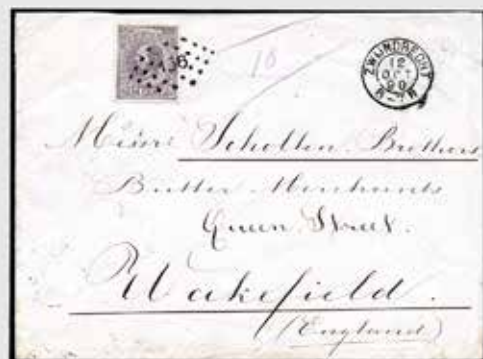 136
10
ZWIJNDRECHT
12
OCT
90
Messrs Scholten Brothers
Butter Merchants
Queen Street.
Wakefield.
(England)